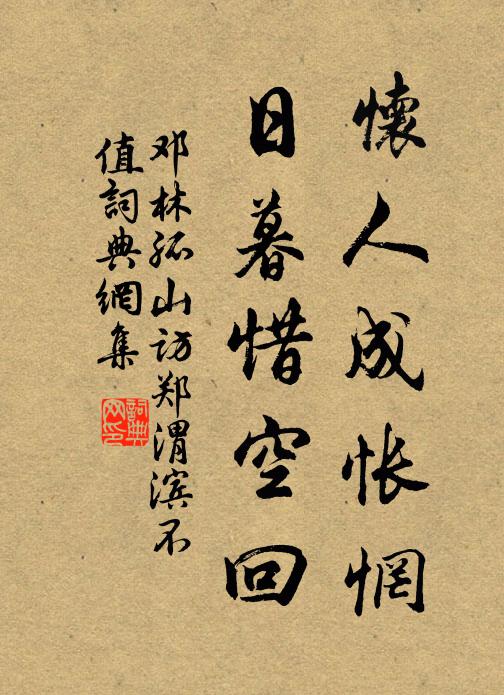 懷人成怅惘
日暮惜空回
邓林孤山访郑渭滨不
值詞典網集
詞典
网印